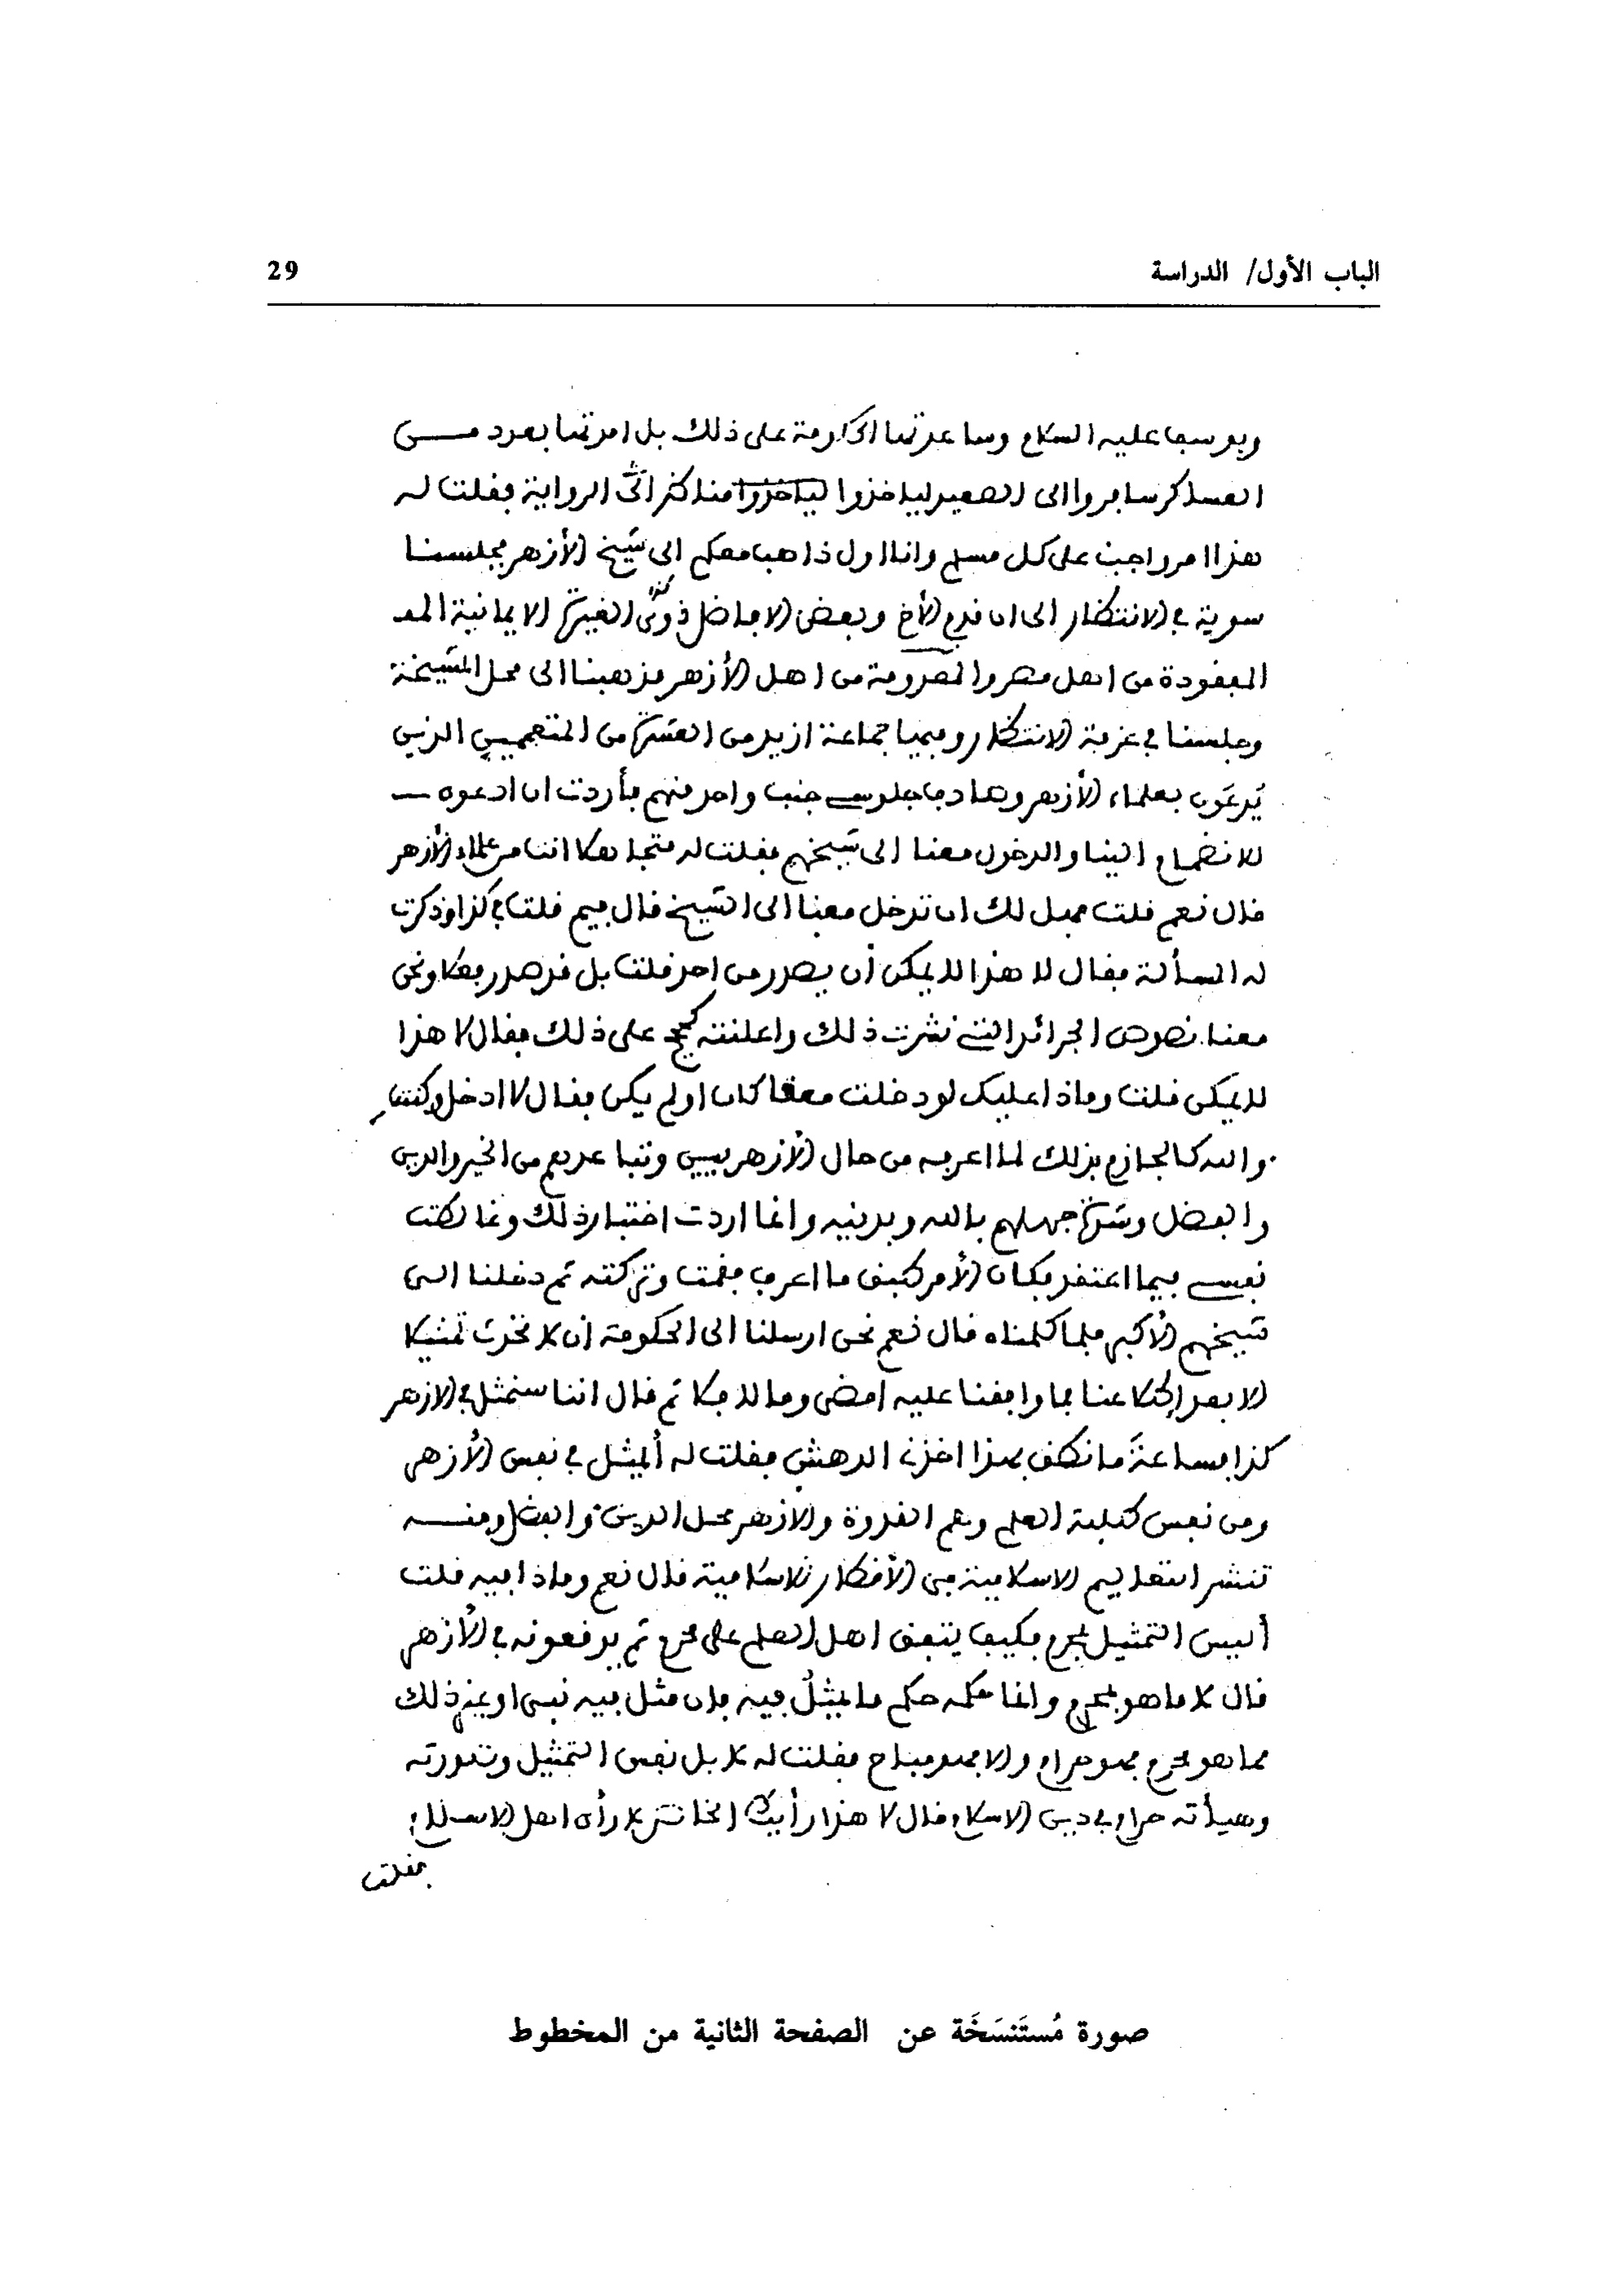 الباب الأول/ الدراسة 29
ويوسف عليه السلام وساعدتها الحكومة على ذلك بل امرتها بعدد مــن
العساكر سافروا الى الصعيد لياخذوا لياخذوا مناظر الرواية فقلت له
هذا امر واجب على كل مسلم وانا اول ذاهب معكم الى شيخ الأزهر فجلسنا
سوية في الانتظار الى ان قدم الأخ وبعض الافاضل ذوي الغيرة الايمانية
المفقودة من اهل مصر والمعدومة من اهل الأزهر فذهبنا الى محل المشيخة
وجلسنا في غرفة الانتظار وفيها جماعة ازيد من العشرة من المتعممين الذين
يُدعَون بعلماء الأزهر وصادف جلوسي جنب واحد منهم فأردت ان ادعوه
للانضمام الينا والدخول معنا الى شيخهم فقلت له متجاهلا انت من علماء الأزهر
قال نعم قلت فهل لك ان تدخل معنا الى الشيخ قال فيم قلت في كذا وذكرت
له المسألة فقال لا هذا لا يمكن أن يصدر من احد قلت بل قد صدر فعلا ونحن
معنا نصوص الجرائد التي نشرت ذلك واعلنته على ذلك فقال لا هذا
لا يمكن قلت وماذا عليك لو دخلت معنا كان او لم يكن فقال لا ادخل وكنت
والله كالجازم بذلك لما اعرفه من حال الأزهريين و عدهم من الخير والدين
والفضل وشدة جهلهم بالله وبدينه وانما اردت اختبار ذلك وغالطت
نفسي فيما اعتقد فكان الأمر كيف ما اعرف فقمت وتركته ثم دخلنا الـى
شيخهم الأكبر فلما كلمناه قال نعم نحن ارسلنا الى الحكومة أن لا تحدث تمثيلا
الا بعد اطلاعنا فما وافقنا عليه امضي وما لا فلا ثم قال اننا سنمثل في الازهر
كذا فساعةَ ما نطق بهذا اخذني الدهش فقلت له أيمثل في نفس الأزهر
ومن نفس طلبة العلم وهم القدوة والأزهر محل الدين والفضل ومنــه
تنشر التعاليم الاسلامية في الأفكار الاسلامية قال نعم وماذا فيه قلت
أليس التمثيل بمحرم فكيف يتفق اهل العلم على محرم ثم يوقعونه في الأزهر
قال لا ما هو بمحرم وانما حكمه حكم ما يمثلُ فيه فإن مثل فيه نبي او غير ذلك
مما هو محرم فهو حرام والا فهو مباح فقلت له لا بل نفس التمثيل وصورته
وهيأته حرام في دين الاسلام قال لا هذا رأيك الخاص لا رأى اهل الاسلام
فقلت
صورة مُستَنسَخَة عن الصفحة الثانية من المخطوط